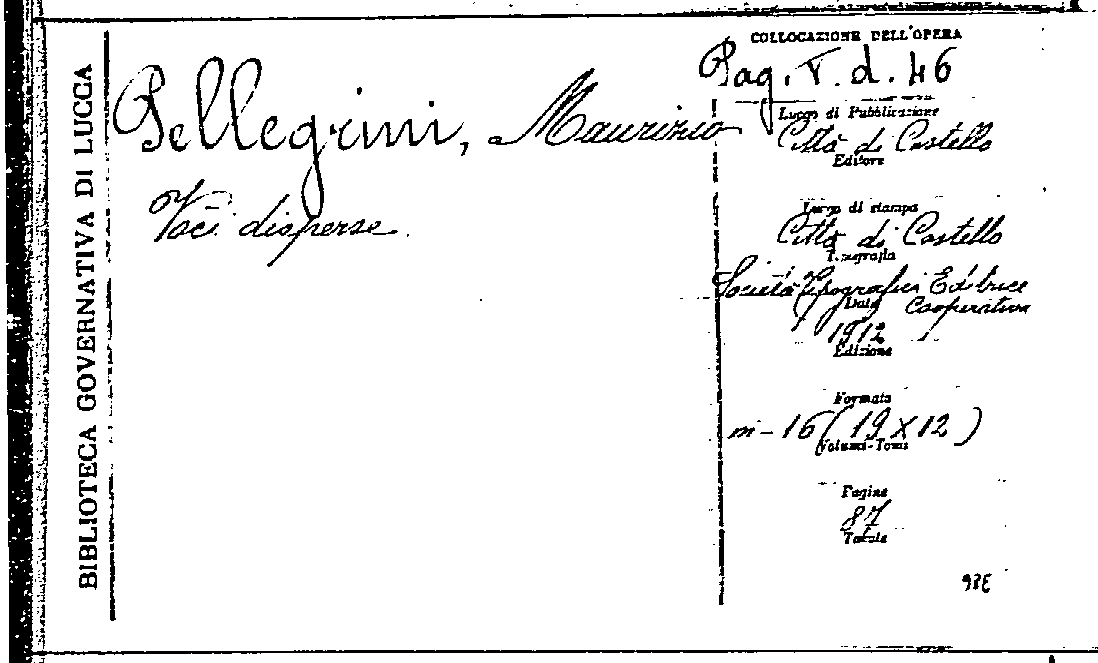 BIBLIOTECA GOVERNATIVA DI LUCCA
Pellegrini, Maurizio
Voci disperse.
COLLOCAZIONE DELL'OPERA
Pag. V. d. 46
Luogo di Pubblicazione
Città di Castello
Editore
Luogo di stampa
Città di Castello
Tipografia
Società Tipografica Editrice
Cooperativa
Data
1912
Edizione
Formato
in-16 (19X12)
Volumi-Tomi
Pagine
87
Tavole